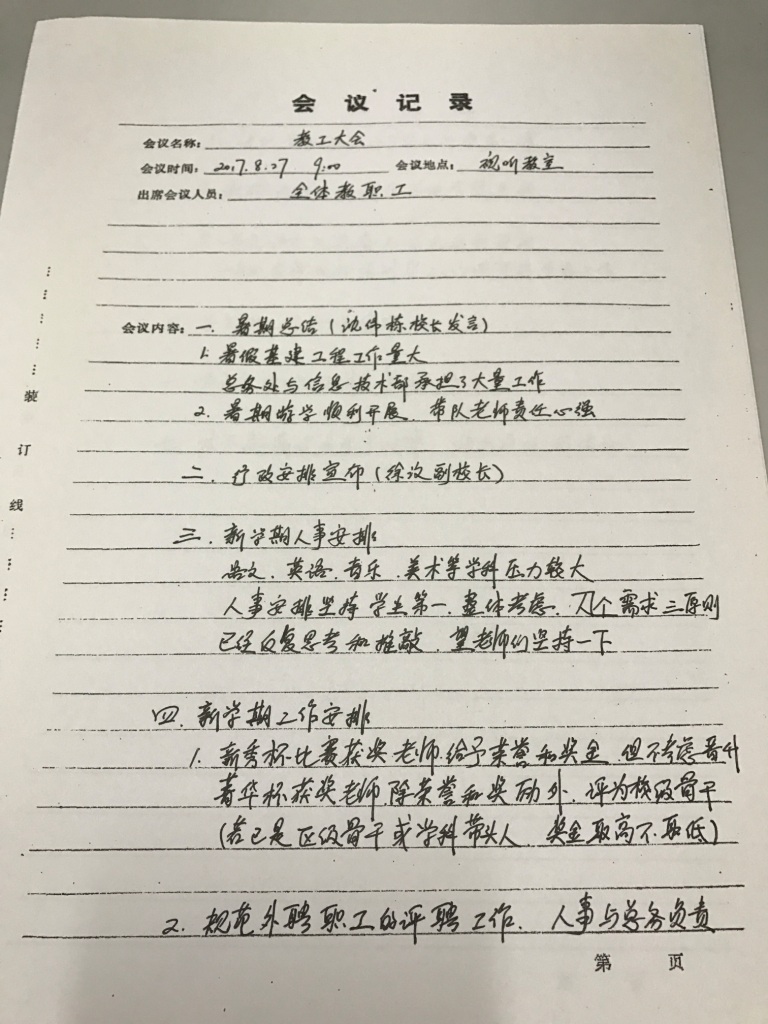 会议记录
会议名称：教工大会
会议时间：2017.8.27 9:00 会议地点：视听教室
出席会议人员：全体教职工
会议内容：一、暑期总结（沈伟栋校长发言）
1. 暑假基建工程工作量大
总务处与信息技术部承担了大量工作
2. 暑期游学顺利开展，带队老师责任心强
二、行政安排宣布（徐汶副校长）
三、新学期人事安排
语文、英语、音乐、美术等学科压力较大
人事安排坚持学生第一、整体考虑、个需求三原则
已经反复思考和推敲，望老师们坚持一下
四、新学期工作安排
1. 新秀杯比赛获奖老师给予荣誉和奖金，但不考虑晋升
菁华杯获奖老师除荣誉和奖励外，评为校级骨干
（若已是区级骨干或学科带头人，奖金取高不取低）
2. 规范外聘职工的评聘工作，人事与总务负责
装订线
第 页